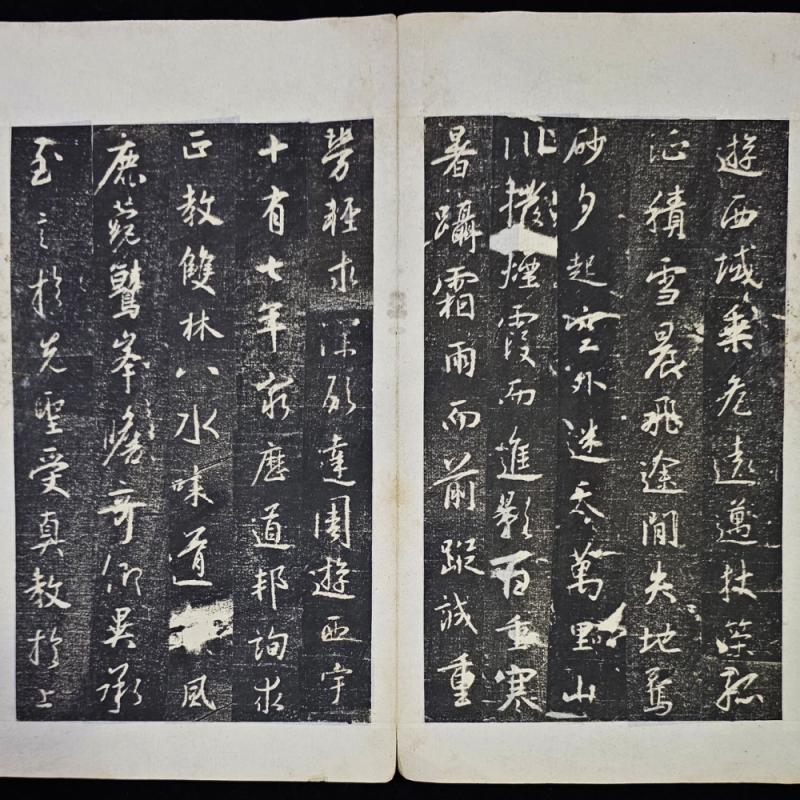 遊西域乘危遠邁杖策孤
征積雪晨飛途閒失地驚
砂夕起空外迷天萬里山
川撥煙霞而進影百重寒
暑躡霜雨而前蹤誠重
勞輕求深願達周遊西宇
十有七年窮歷道邦詢求
正教雙林八水味道風
鹿菀鷲峯瞻奇仰異承
至言於先聖受真教於上